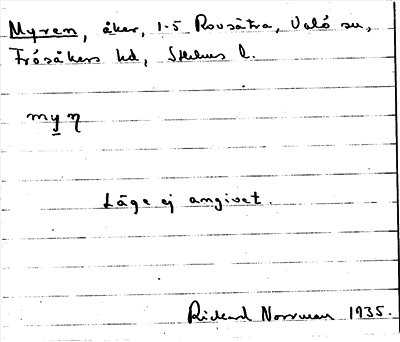 Myren, åker, 1-5 Rovsätra, Valö sn,
Frösåkers hd, Sthlms l.
my η
Läge ej angivet.
Rickard Norrman 1935.